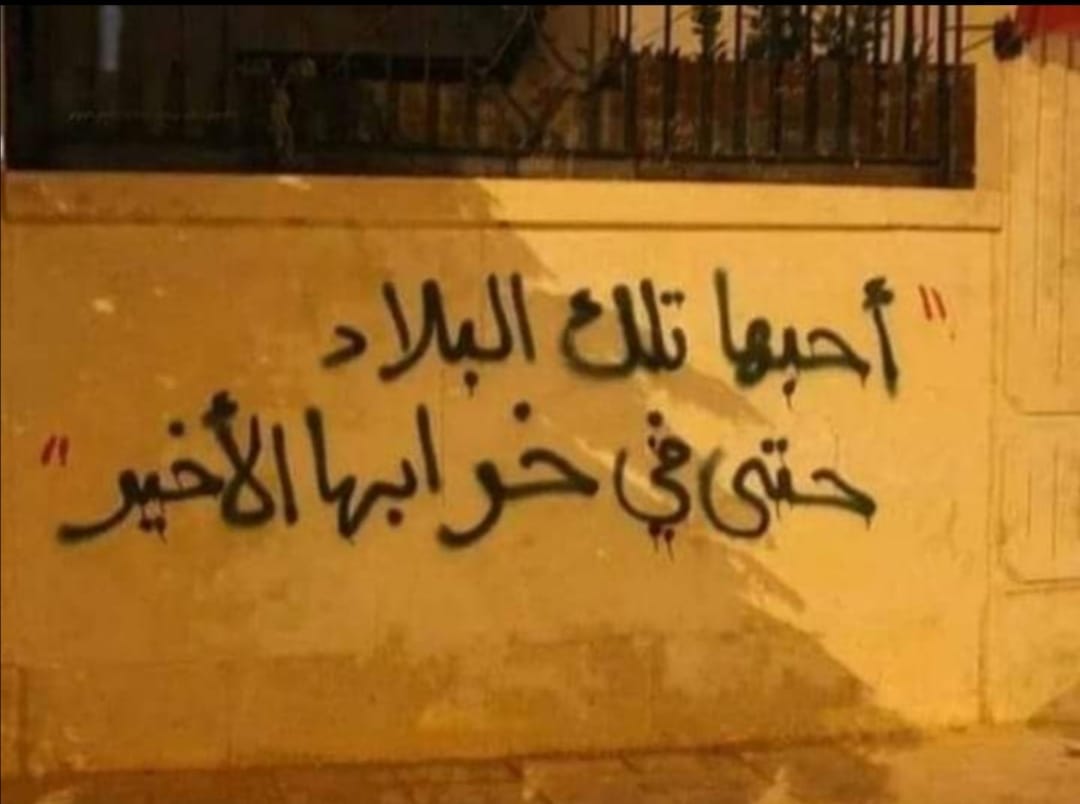 "أحبها تلك البلاد
حتى في خرابها الأخير"